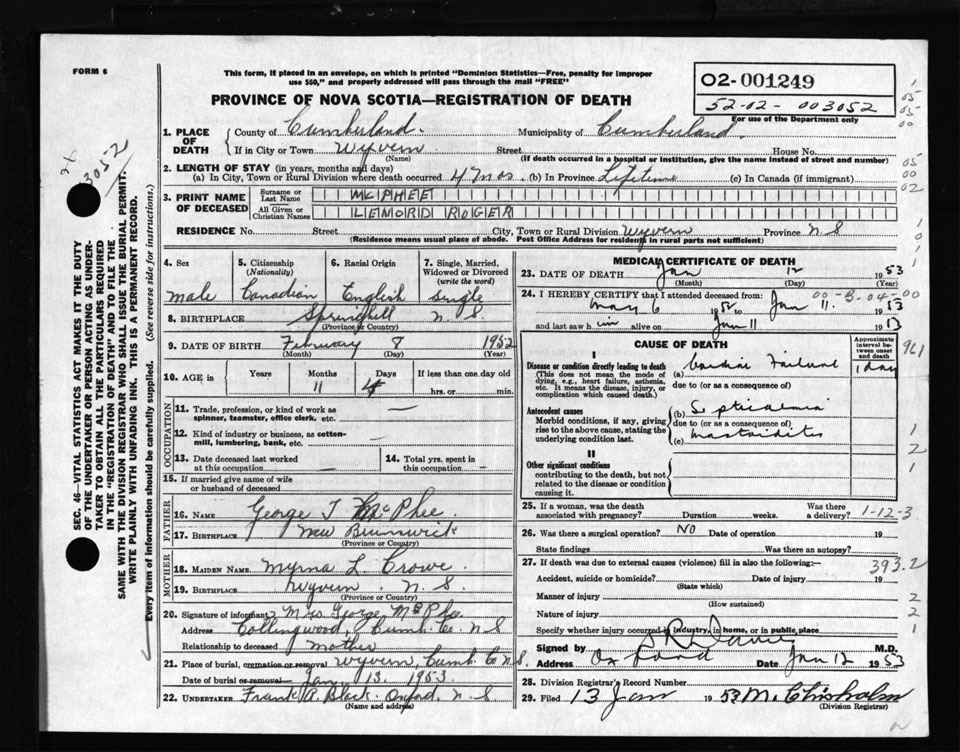 FORM 6
This form, if placed in an envelope, on which is printed "Dominion Statistics—Free, penalty for improper
use $50," and properly addressed will pass through the mail "FREE"
O2-001249
52-02- 003052
For use of the Department only
PROVINCE OF NOVA SCOTIA—REGISTRATION OF DEATH
1. PLACE OF DEATH County of Cumberland. Municipality of Cumberland.
If in City or Town Wyvern (Name) Street House No.
(If death occurred in a hospital or institution, give the name instead of street and number)
2. LENGTH OF STAY (in years, months and days)
(a) In City, Town or Rural Division where death occurred 4 Mos. (b) In Province Lifetime (c) In Canada (if immigrant)
3. PRINT NAME OF DECEASED
Surname or Last Name MCPHEE
All Given or Christian Names LENORD ROGER
RESIDENCE No. Street City, Town or Rural Division Wyvern Province N S
(Residence means usual place of abode. Post Office Address for residents in rural parts not sufficient)
4. Sex male
5. Citizenship (Nationality) Canadian
6. Racial Origin English
7. Single, Married, Widowed or Divorced (write the word) single
8. BIRTHPLACE Springhill N. S
(Province or Country)
9. DATE OF BIRTH February 8 1952
(Month) (Day) (Year)
10. AGE in Years Months 11 Days 4 If less than one day old hrs. or min.
OCCUPATION
11. Trade, profession, or kind of work as spinner, teamster, office clerk, etc. —
12. Kind of industry or business, as cotton-mill, lumbering, bank, etc. —
13. Date deceased last worked at this occupation —
14. Total yrs. spent in this occupation —
15. If married give name of wife or husband of deceased
FATHER
16. NAME George T McPhee
17. BIRTHPLACE New Brunswick
(Province or Country)
MOTHER
18. MAIDEN NAME Myrna L. Crowe
19. BIRTHPLACE Wyvern N. S
(Province or Country)
20. Signature of informant Mrs George McPhee
Address Collingwood, Cumb. Co. N S
Relationship to deceased mother
21. Place of burial, cremation or removal Wyvern, Cumb. C N.S.
Date of burial or removal Jan. 13. 1953
22. UNDERTAKER Frank A. Black. Oxford, N. S
(Name and address)
MEDICAL CERTIFICATE OF DEATH
23. DATE OF DEATH Jan 12 1953
(Month) (Day) (Year)
24. I HEREBY CERTIFY that I attended deceased from:
00-3-04-00
May 6 1952 to Jan 11. 1953
and last saw him alive on Jan 11 1953
CAUSE OF DEATH
Approximate interval between onset and death
I
Disease or condition directly leading to death
(This does not mean the mode of dying, e.g., heart failure, asthenia, etc. It means the disease, injury, or complication which caused death.)
(a) Cardiac Failure 1 day
due to (or as a consequence of)
Antecedent causes
Morbid conditions, if any, giving rise to the above cause, stating the underlying condition last.
(b) Septicaemia
due to (or as a consequence of)
(c) mastoiditis
II
Other significant conditions
contributing to the death, but not related to the disease or condition causing it.
25. If a woman, was the death associated with pregnancy? Duration weeks. Was there a delivery?
1-12-3
26. Was there a surgical operation? NO Date of operation 19
State findings Was there an autopsy?
27. If death was due to external causes (violence) fill in also the following:—
393.2
Accident, suicide or homicide? Date of injury 19
(State which)
Manner of injury
(How sustained)
Nature of injury
Specify whether injury occurred in industry, in home, or in public place
Signed by M.D.
Address Oxford Date Jan 12 1953
28. Division Registrar's Record Number
29. Filed 13 Jan 1953 M. Chisholm
(Division Registrar)
SEC. 46—VITAL STATISTICS ACT MAKES IT THE DUTY
OF THE UNDERTAKER OR PERSON ACTING AS UNDER-
TAKER TO OBTAIN ALL THE PARTICULARS REQUIRED
IN THE "REGISTRATION OF DEATH" AND TO FILE THE
SAME WITH THE DIVISION REGISTRAR WHO SHALL ISSUE THE BURIAL PERMIT.
WRITE PLAINLY WITH UNFADING INK. THIS IS A PERMANENT RECORD.
Every item of information should be carefully supplied. (See reverse side for instructions.)
3052
961